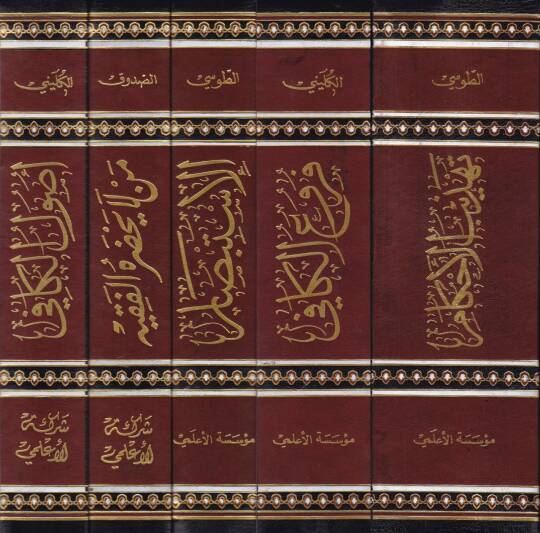 الطوسي
تهذيب الأحكام
مؤسسة الأعلمي
الكليني
فروع الكافي
مؤسسة الأعلمي
الطوسي
الإستبصار
مؤسسة الأعلمي
الصدوق
من لا يحضره الفقيه
شركة
الأعلمي
الكليني
أصول الكافي
شركة
الأعلمي